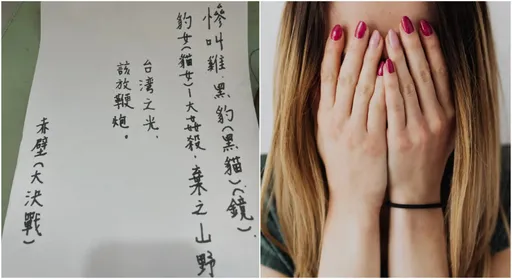 慘叫雞.黑豹(黑貓)(鏡)
豹女(貓女)-大姦殺.棄之山野
台湾之光.
該放鞭炮。
赤壁(大決戰)